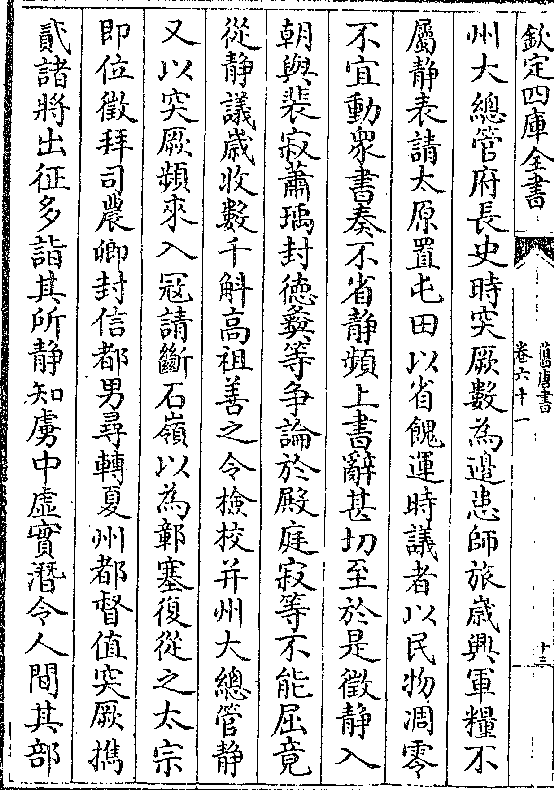 欽定四庫全書
舊唐書
卷六十一
十三
州大總管府長史時突厥數為邊患師旅歲興軍糧不
屬静表請太原置屯田以省餽運時議者以民物凋零
不宜動衆書奏不省静頻上書辭甚切至於是徵静入
朝與裴寂蕭瑀封徳彝等争論於殿庭寂等不能屈竟
從静議歲收數千斛高祖善之令檢校并州大總管静
又以突厥頻來入冦請斷石嶺以為鄣塞復從之太宗
即位徵拜司農卿封信都男尋轉夏州都督值突厥攜
貳諸將出征多詣其所静知虜中虛實潛令人間其部